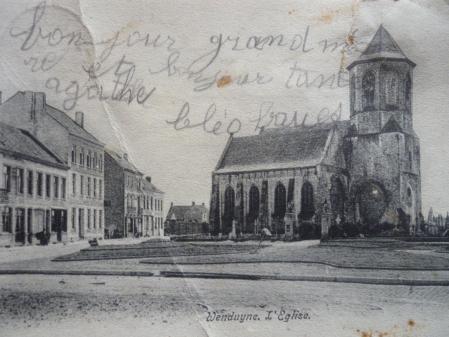 bonjour grandmè
re et bonjour tante
agathe
bléo
Wenduyne. L'Église.